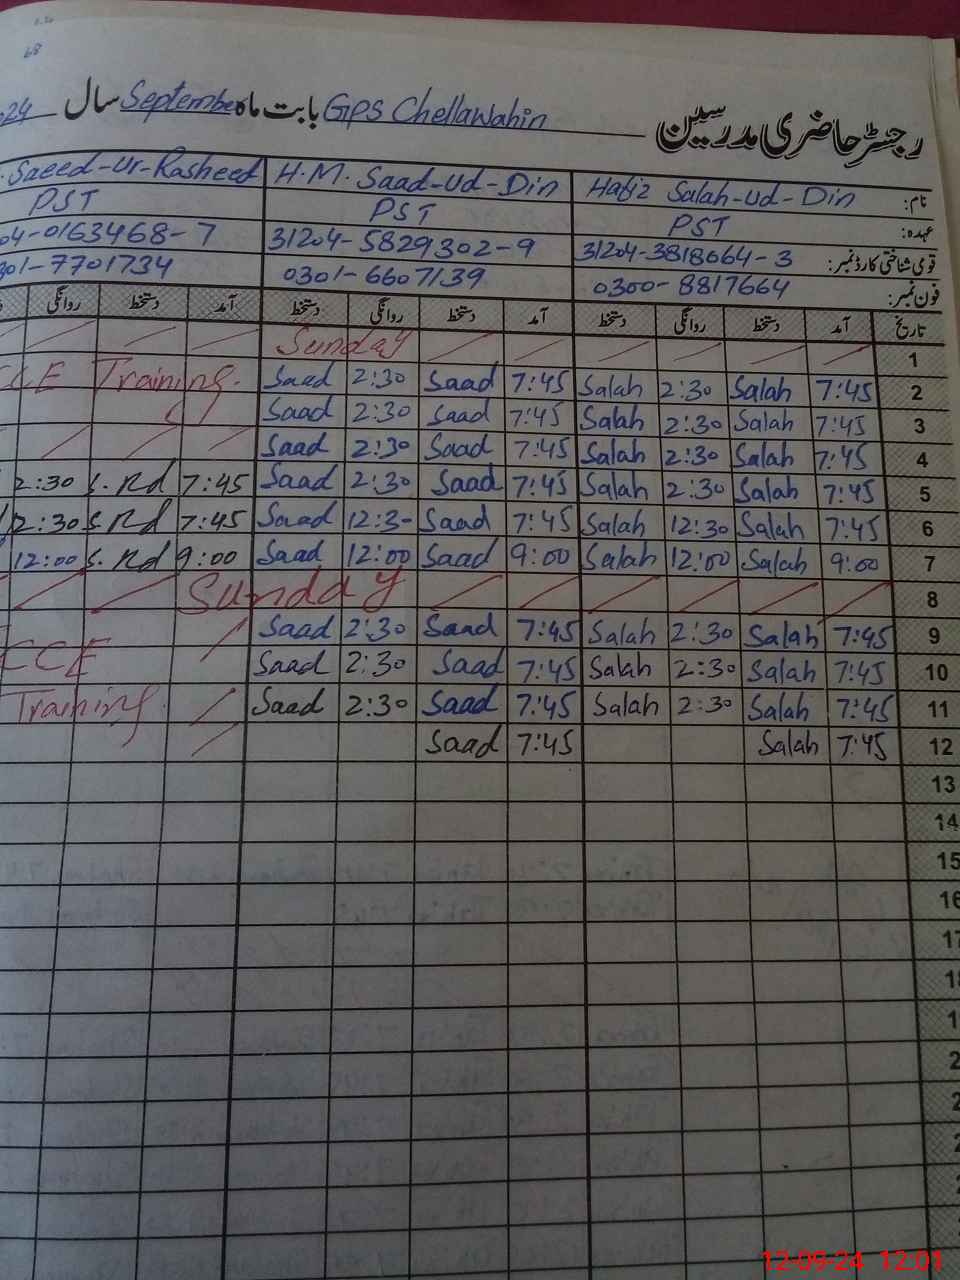 68
رجسٹر حاضری مدرسین GPS Chellawahin بابت ماہ September سال 24
نام: Hafiz Salah-ud-Din H.M. Saad-ud-Din Saeed-ur-Rasheed
عہدہ: PST PST PST
قومی شناختی کارڈ نمبر: 31204-3818664-3 31204-5829302-9 04-0163468-7
فون نمبر: 0300-8817664 0301-6607139 301-7701734
تاریخ آمد دستخط روانگی دستخط آمد دستخط روانگی دستخط آمد دستخط روانگی
1 Sunday
2 7:45 Salah 2:30 Salah 7:45 Saad 2:30 Saad CCE Training.
3 7:45 Salah 2:30 Salah 7:45 Saad 2:30 Saad
4 7:45 Salah 2:30 Salah 7:45 Saad 2:30 Saad
5 7:45 Salah 2:30 Salah 7:45 Saad 2:30 Saad 7:45 S. Rd 2:30
6 7:45 Salah 12:30 Salah 7:45 Saad 12:3- Saad 7:45 S. Rd 2:30
7 9:00 Salah 12:00 Salah 9:00 Saad 12:00 Saad 9:00 S. Rd 12:00
8 Sundday
9 7:45 Salah 2:30 Salah 7:45 Saad 2:30 Saad
10 7:45 Salah 2:30 Salah 7:45 Saad 2:30 Saad CCE
11 7:45 Salah 2:30 Salah 7:45 Saad 2:30 Saad Training.
12 7:45 Salah 7:45 Saad
13
14
15
16
17
12-09-24 12:01